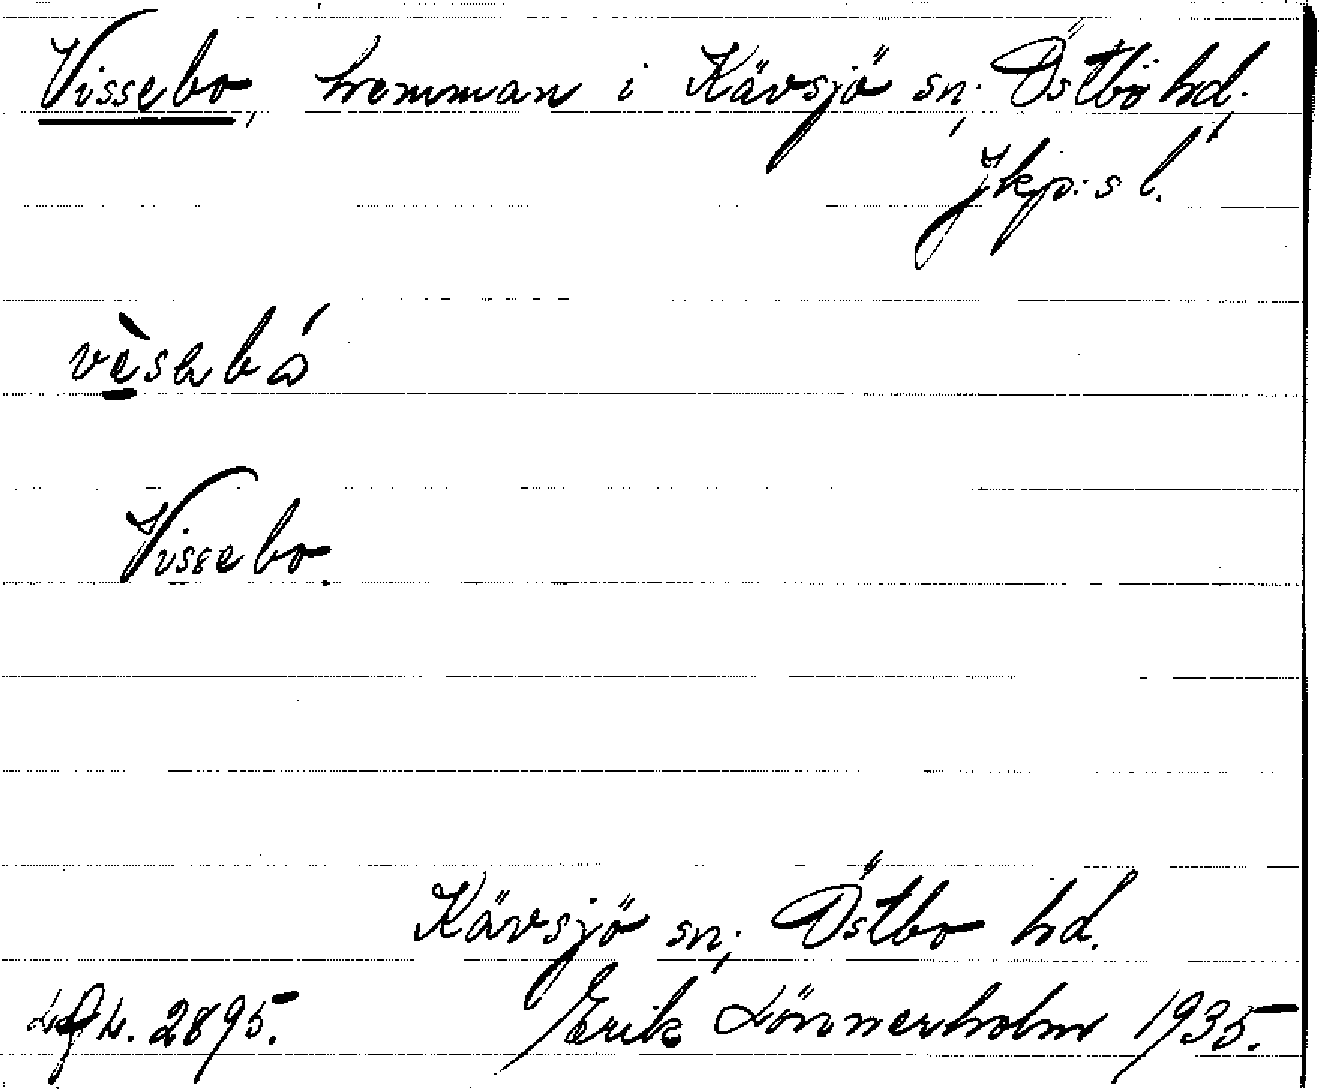 Vissebo, hemman i Kävsjö sn; Östbo hd,
Jkp:s l.
Vissebo.
Kävsjö sn; Östbo hd.
2895. Erik Lönnerholm 1935.